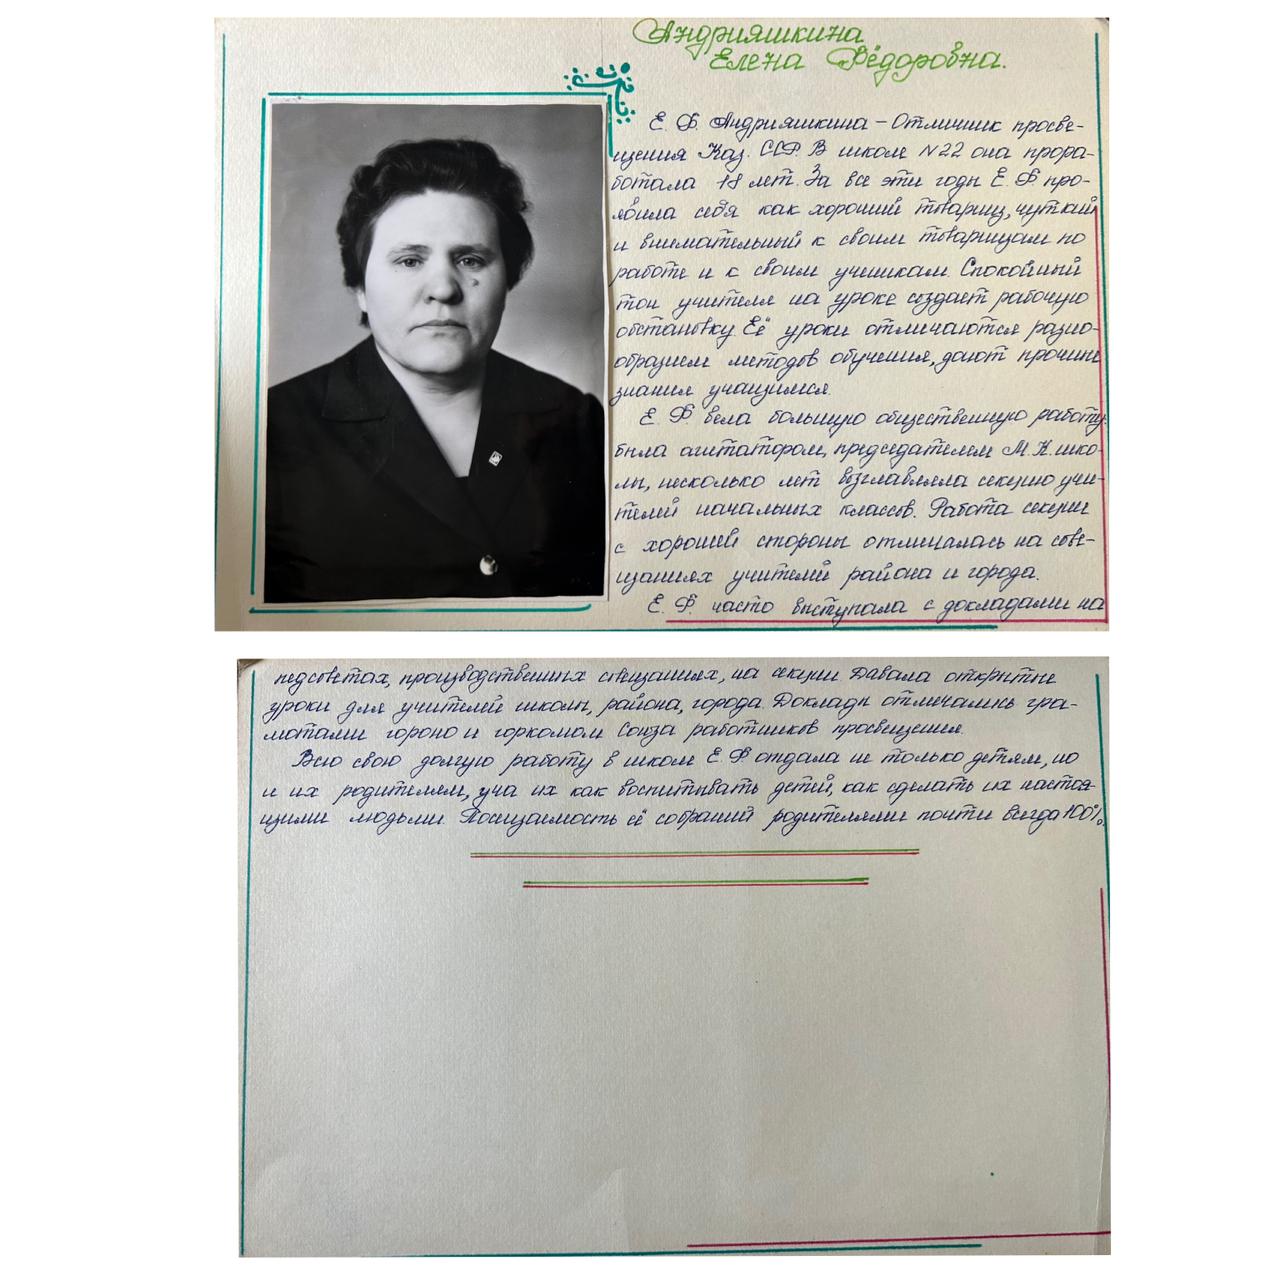 Андрияшкина
Елена Фёдоровна.
Е. Ф. Андрияшкина – Отличник просве-
щения Каз. ССР. В школе N22 она прора-
ботала 18 лет. За все эти годы Е. Ф. про-
явила себя как хороший товарищ, чуткий
и внимательный к своим товарищам по
работе и к своим ученикам. Спокойный
тон учителя на уроке создает рабочую
обстановку. Её уроки отличаются разно-
образием методов обучения, дают прочные
знания учащимся.
Е. Ф. вела большую общественную работу:
была агитатором, председателем М. К. шко-
лы, несколько лет возглавляла секцию учи-
телей начальных классов. Работа секции
с хорошей стороны отмечалась на сове-
щаниях учителей района и города.
Е. Ф. часто выступала с докладами на
педсоветах, производственных совещаниях, на секции. Давала открытые
уроки для учителей школы, района, города. Доклады отличались гра-
мотами гороно и горкомом Союза работников просвещения.
Всю свою долгую работу в школе Е. Ф отдала не только детям, но
и их родителям, уча их как воспитывать детей, как сделать их настоя-
щими людьми. Посещаемость её собраний родителями почти всегда 100%.